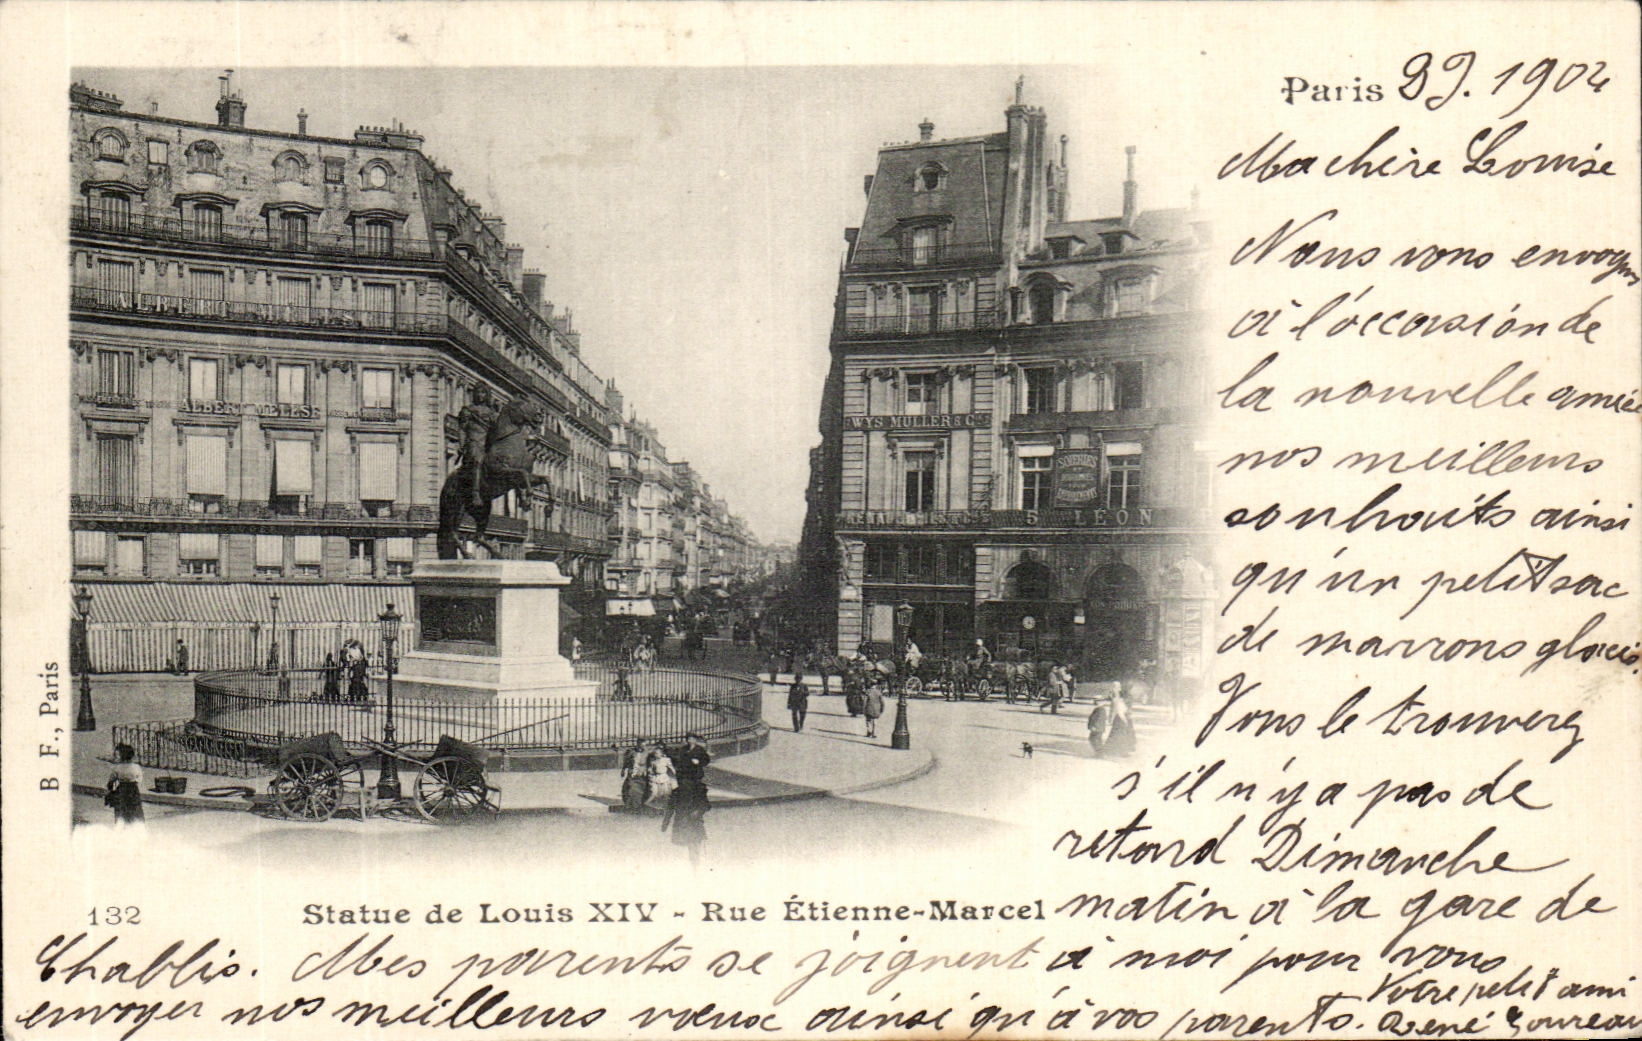 Paris 29. 1902
Ma chère Louise
Nous vous envoyons
à l'occasion de
la nouvelle année
nos meilleurs
souhaits ainsi
qu'un petit sac
de marrons glacés.
Vous le trouverez
s'il n'y a pas de
retard Dimanche
matin à la gare de
Chablis. Mes parents se joignent à moi pour vous
envoyer nos meilleurs vœux ainsi qu'à vos parents.
Votre petit ami
René
ALBERT MELÈSE
ALBERT MELÈSE
WYS MULLER & Cie
SOIERIES
5 LÉON
B F., Paris
132 Statue de Louis XIV - Rue Étienne-Marcel